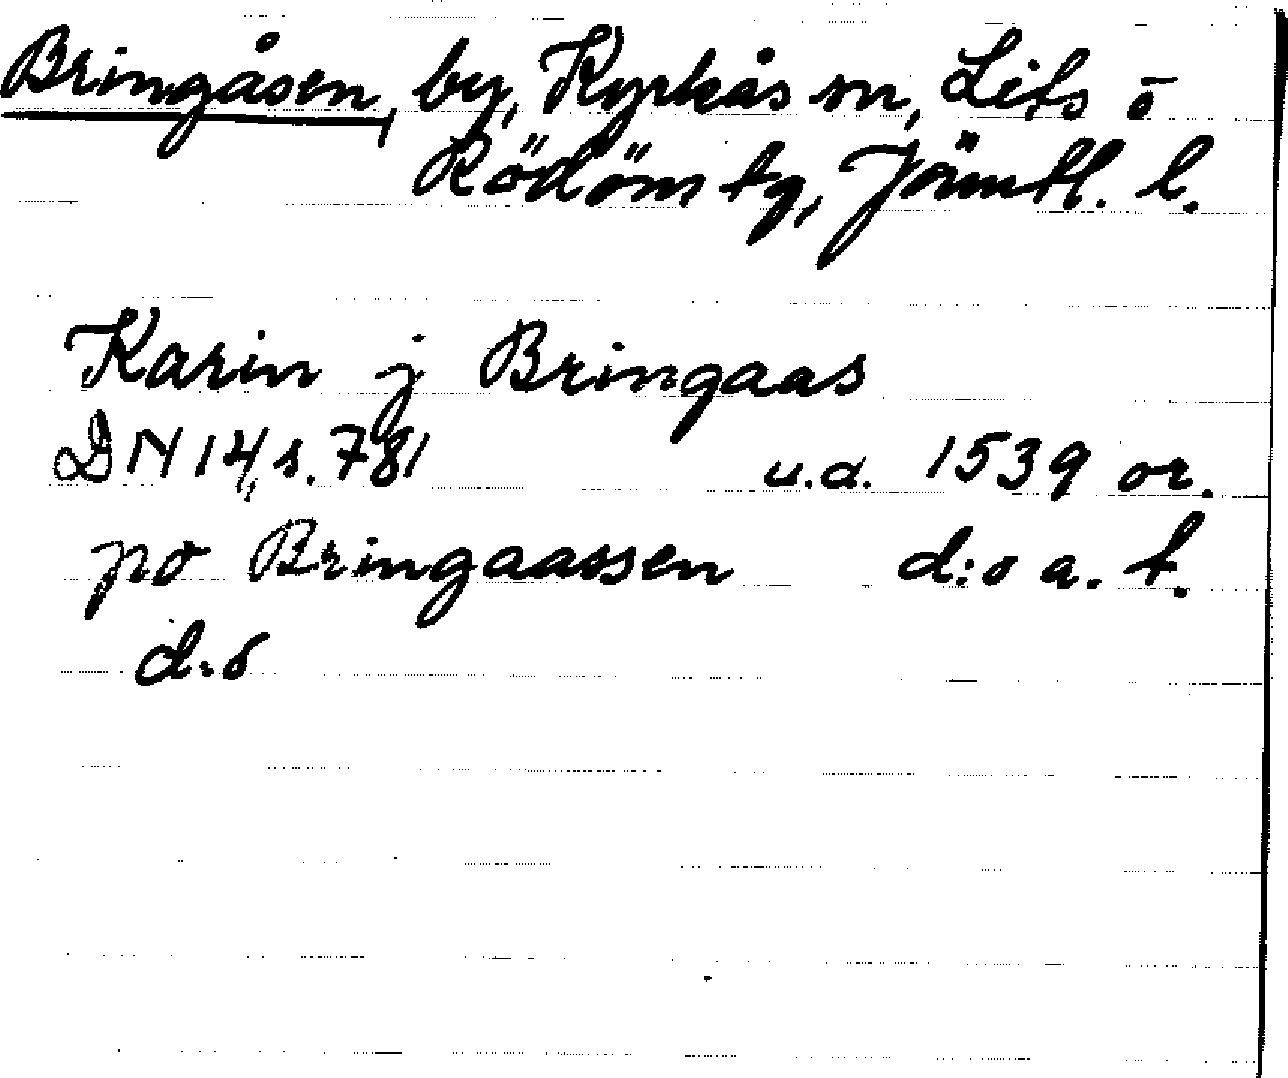 Bringåsen, by, Kyrkås sn, Lits o
Rödöns tg, Jämtl. l.
Karin j Bringaas
DN 14, s. 781 u.d. 1539 or.
po Bringaassen d:o a. t.
d:o